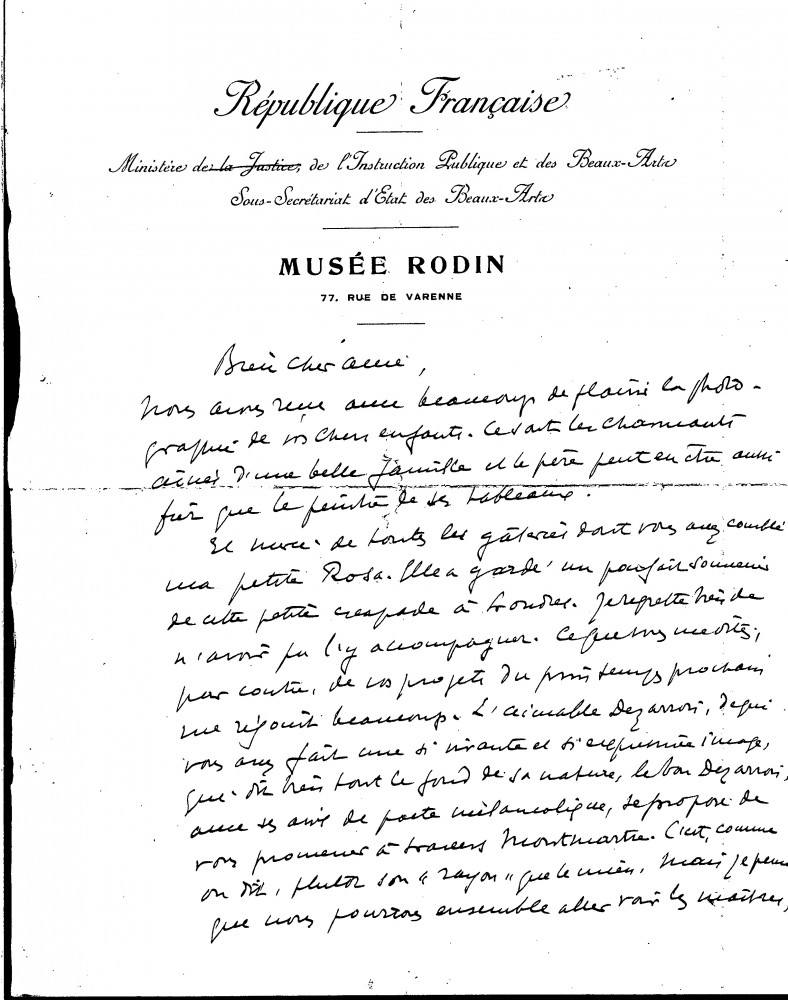 République Française
Ministère de la Justice, de l'Instruction Publique et des Beaux-Arts
Sous-Secrétariat d'Etat des Beaux-Arts
MUSÉE RODIN
77, RUE DE VARENNE
Bien cher ami,
Nous avons reçu avec beaucoup de plaisir la photo-
graphie de vos chers enfants. Ce sont les charmants
aînés d'une belle famille et le père peut en être aussi
fier que le peintre de ses tableaux.
Et merci de toutes les gâteries dont vous avez comblé
ma petite Rosa. Elle a gardé un parfait souvenir
de cette petite escapade à Londres. Je regrette bien de
n'avoir pu l'y accompagner. Ce que vous me dites,
par contre, de vos projets du printemps prochain
me réjouit beaucoup. L'aimable Dezarrois, de qui
vous avez fait une si vivante et si expressive image,
qui dit bien tout le fond de sa nature, le bon Dezarrois,
avec ses airs de poète mélancolique, se propose de
vous promener à travers Montmartre. C'est, comme
on dit, plutôt son "rayon" que le mien. Mais je pense
que nous pourrons ensemble aller voir les maîtres,